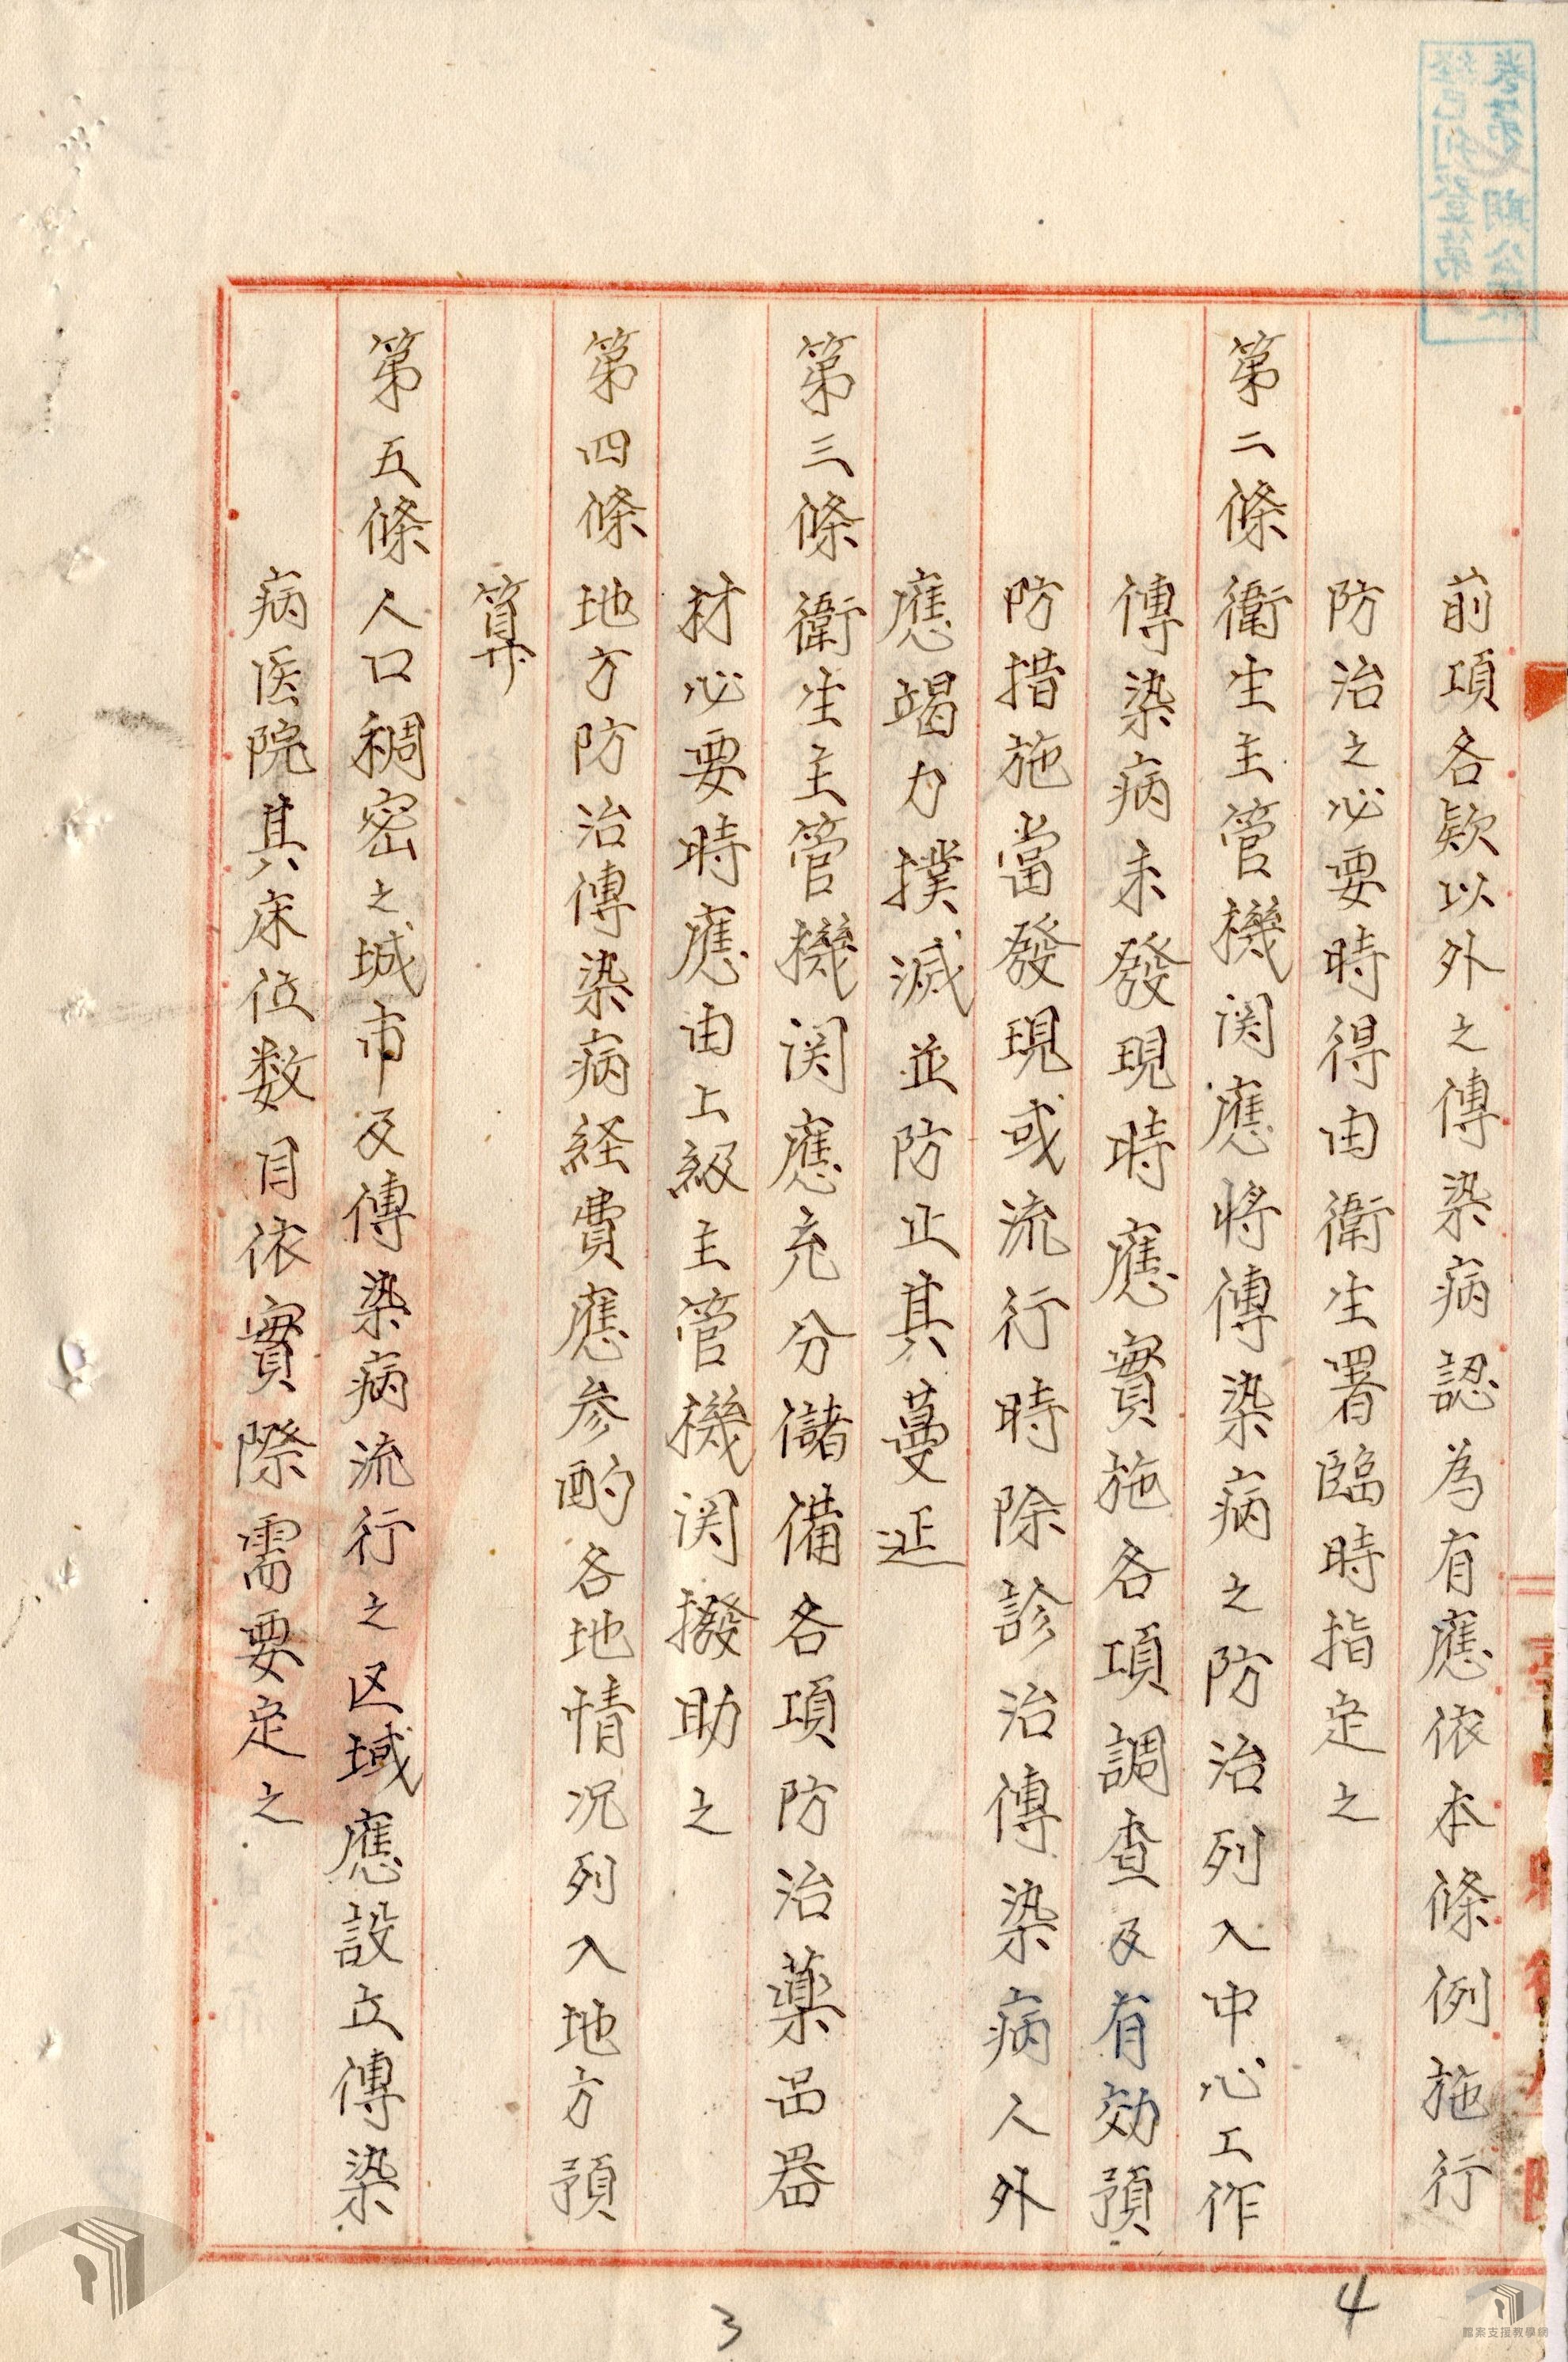 前項各欵以外之傳染病認為有應依本條例施行
防治之必要時得由衛生署臨時指定之
第二條衛生主管機関應將傳染病之防治列入中心工作
傳染病未發現時應實施各項調查及有効預
防措施當發現或流行時除診治傳染病人外
應竭力撲滅並防止其蔓延
第三條衛生主管機関應充分儲備各項防治藥品器
材必要時應由上級主管機関撥助之
第四條地方防治傳染病経費應参酌各地情况列入地方預
算
第五條人口稠密之城市及傳染病流行之区域應設立傳染
病医院其床位数目依實際需要定之
3
4
檔案支援教學網